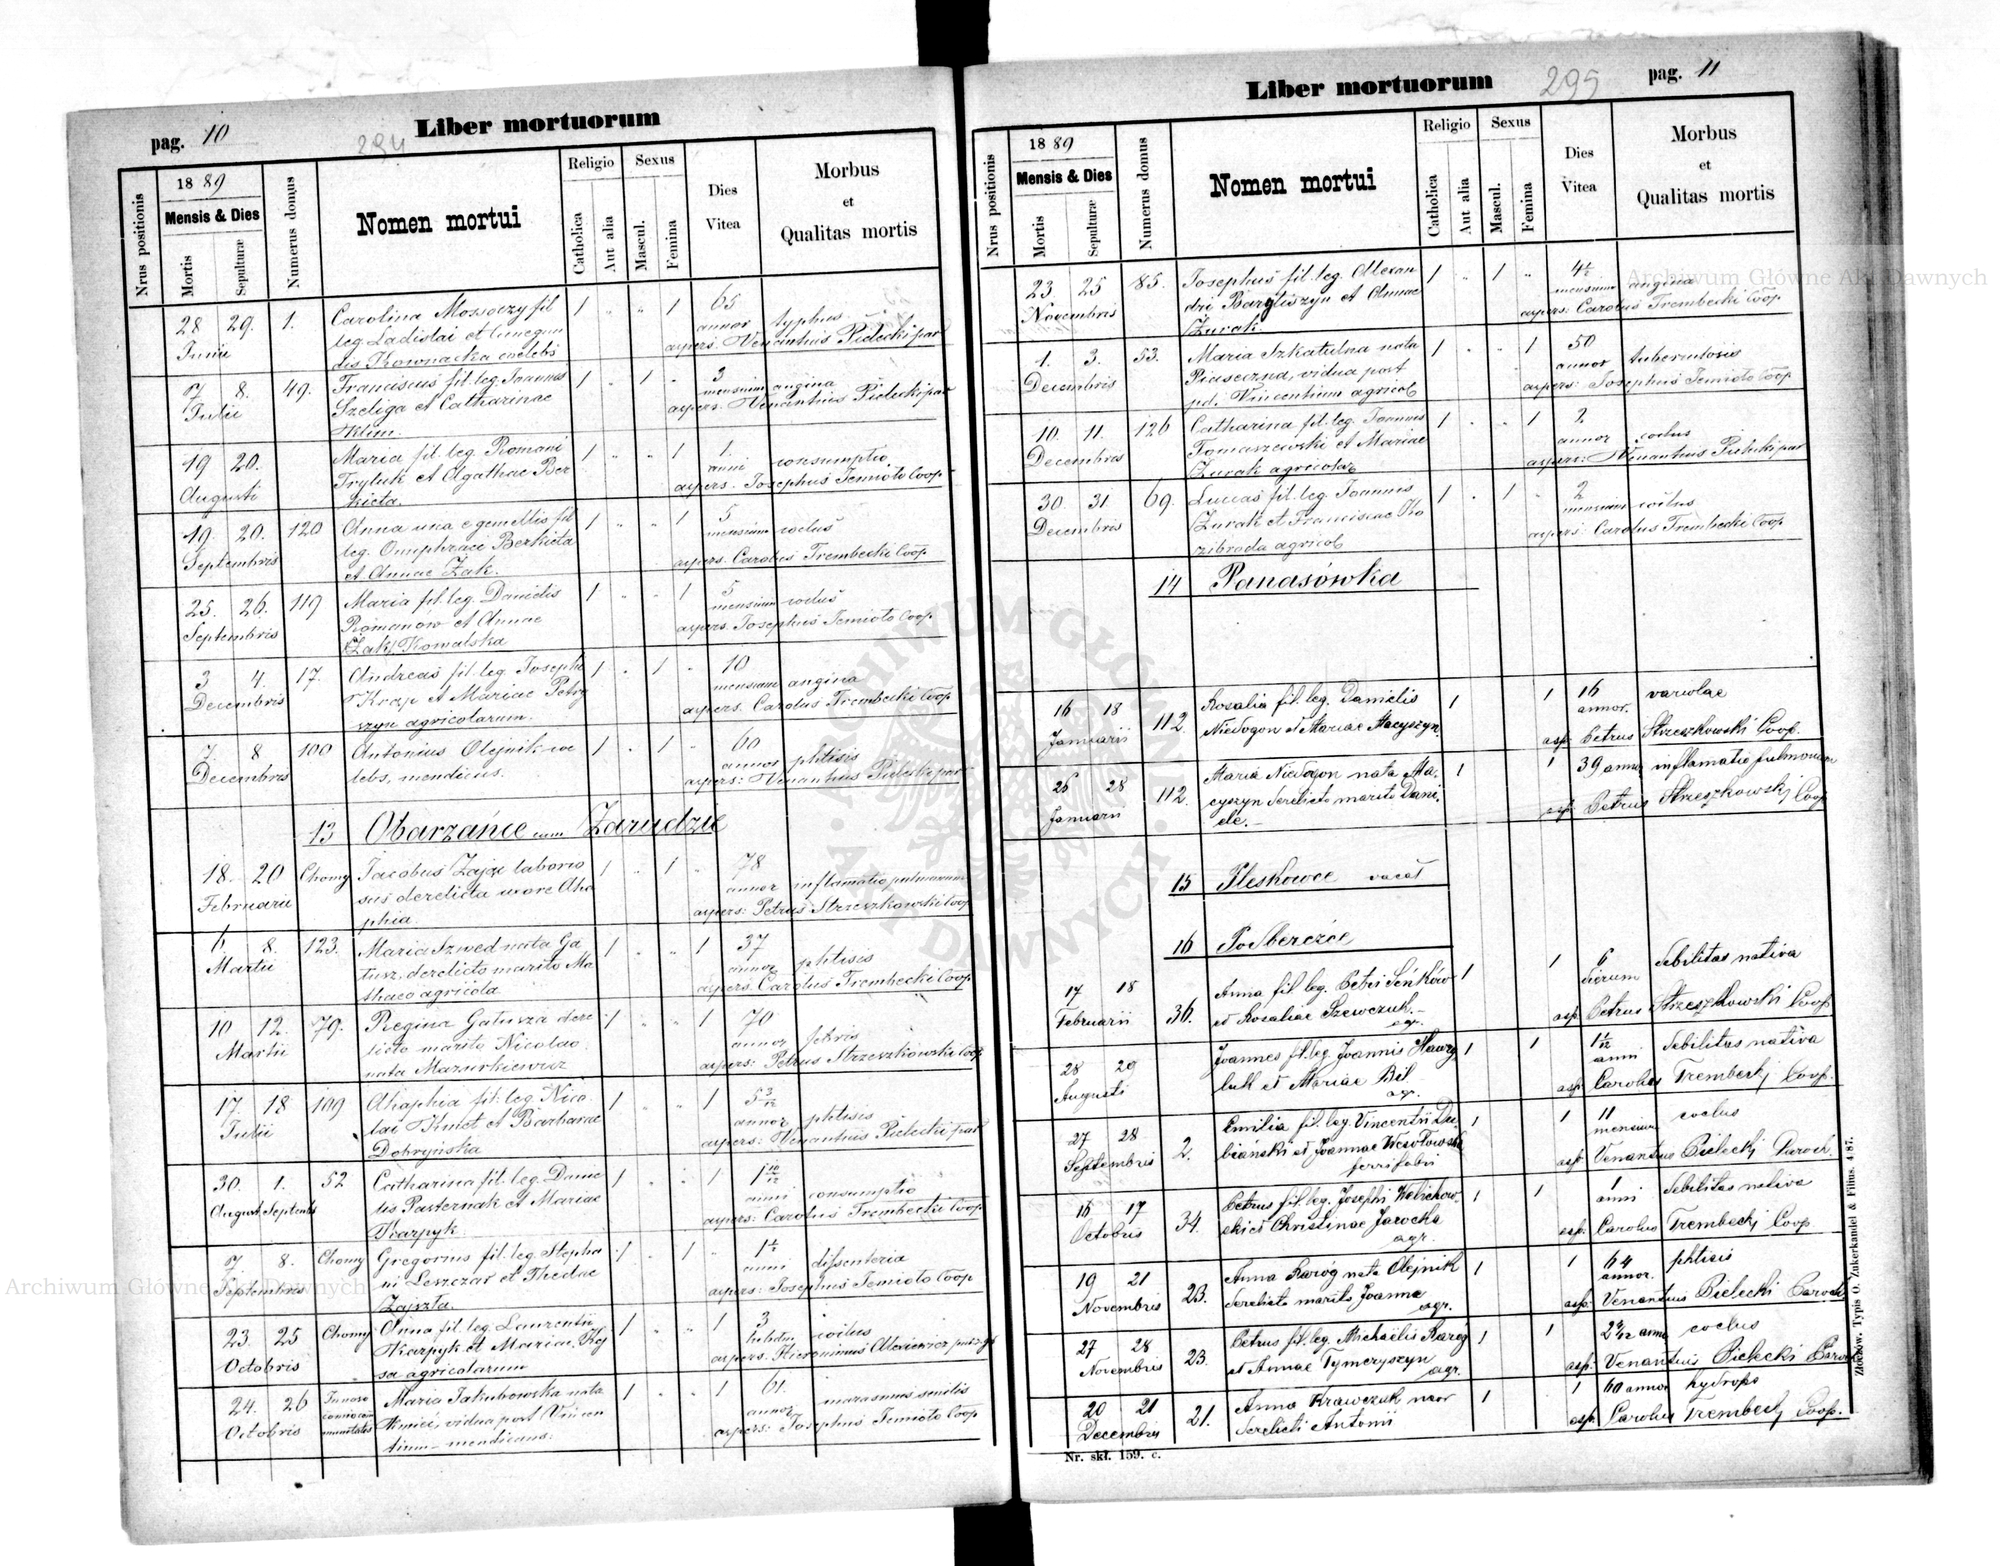 pag. 10
294
Liber mortuorum
Nrus positionis
18 89
Mensis & Dies
Mortis
Sepulturæ
Numerus domus
Nomen mortui
Religio
Catholica
Aut alia
Sexus
Mascul.
Femina
Dies
Vitea
Morbus
et
Qualitas mortis
28 29. 1. Carolina Mossoczy fil 1 " " 1 65
Junii leg Ladislai et Cunegun annor typhus
dis Kownacka coelebs aspers. Venantius Pielecki par
7 8. 49. Franciscus fil. leg. Joannis 1 " 1 " 3
Julii Szeliga et Catharinae mensium angina
Klim. aspers. Venantius Pielecki par
19 20. Maria fil. leg. Romani 1 " " 1 1.
Augusti Tryluk et Agathae Ber anni consumptio
kieta. aspers. Josephus Temioto Coop
19. 20. 120 Anna una e gemellis fil 1 " " 1 5
Septembris leg. Onuphraei Berkieta mensium coclus
et Annae Żak. aspers. Carolus Trembecki Coop
25. 26. 119 Maria fil. leg. Danielis 1 " " 1 5
Septembris Romanów et Annae mensium coclus
Żak, Kowalska aspers. Josephus Temioto Coop
3 4. 17. Andreas fil. leg. Josephi 1 " 1 " 10
Decembris Krap et Mariae Petry mensium angina
szyn agricolarum. aspers. Carolus Trembecki Coop
7. 8 100 Antonius Olejnik coe 1 " 1 " 60
Decembris lebs, mendicus. annor phtisis
aspers: Venantius Pielecki par
13 Obarzańce cum Zarudzie
18. 20 Chomy Jacobus Zając laborio 1 " 1 " 78
Februarii sus derelicta uxore Aha annor inflamatio pulmonum
phia aspers: Petrus Strzeszkowski Coop
6 8. 123. Maria Szwed nata Ga 1 " " 1 37
Martii tusz, derelicto marito Ma annor phtisis
thaeo agricola aspers. Carolus Trembecki Coop
10 12. 79. Regina Gatusza dere 1 " " 1 70
Martii licto marito Nicolao annor febris
nata Mazurkiewicz aspers: Petrus Strzeszkowski Coop
17. 18 109 Ahaphia fil. leg. Nico 1 " " 1 5 3/12
Julii lai Kmet et Barbarae annor phtisis
Dobryńska aspers: Venantius Pielecki par
30. 1. 52 Catharina fil. leg. Danie 1 " " 1 1 10/12
August. Septembr lis Pasternak et Mariae anni consumptio
Karpyk. aspers: Carolus Trembecki Coop
7. 8. Chomy Gregorius fil. leg. Stepha 1 " 1 "
Septembris ni Leszczar et Thedae anni dissenteria
Zajszła. aspers: Josephus Temioto Coop
23. 25 Chomy Anna fil. leg. Laurentii 1 " " 1 3
Octobris Karpyk et Mariae hebdm coclus
agricolarum aspers. Hieronimus
24. 26 Maria Jakubowska nata 1 " " 1 61.
Octobris Kmieć, vidua post Vincen annor marasmus senilis
tium mendicans. aspers: Josephus Temioto Coop
Liber mortuorum
295
pag. 11
Nrus positionis
18 89
Mensis & Dies
Mortis
Sepulturæ
Numerus domus
Nomen mortui
Religio
Catholica
Aut alia
Sexus
Mascul.
Femina
Dies
Vitea
Morbus
et
Qualitas mortis
23 25 85. Josephus fil. leg. Alexan 1 " 1 "
Novembris dri Bargliszyn et Annae mensium angina
Żurak. aspers: Carolus Trembecki Coop
1. 3. 53. Maria Szkatulna nata 1 " " 1 50
Decembris Piaseczna, vidua post annor tuberculosis
pd. Vincentium agricol aspers: Josephus Temioto Coop
10. 11. 126 Catharina fil. leg. Joannis 1 " " 1 2
Decembris Tomaszewski et Mariae annor coclus
Żurak agricolar aspers: Venantius Pielecki par
30. 31 69. Lucas fil. leg. Joannis 1 " 1 " 2
Decembris Żurak et Franciscae Ko mensium coclus
zibroda agricol aspers: Carolus Trembecki Coop
14 Panasówka
16 18 112. Rosalia fil. leg. Danielis 1 1 16 variolae
Januarii Niedogon et Mariae Macyszyn annor.
asp: Petrus Strzeszkowski Coop.
26 28 112. Maria Niedogon nata Ma 1 1 39 annor inflamatio pulmonum
Januarii cyszyn derelicto marito Dani
ele. asp. Petrus Strzeszkowski Coop
15 Pleskowce vacat
16 Podbereźce
17 18 36. Anna fil. leg. Petri Seńków 1 1 6 debilitas nativa
Februarii et Rosaliae Szewczuk dierum
agr. asp: Petrus Strzeszkowski Coop.
28 29 Joannes fil. leg. Joannis Hawry 1 1 1/12 debilitas nativa
Augusti luk et Mariae Bil anni
agr. asp: Carolus Trembecki Coop.
27 28 2. Emilia fil. leg. Vincentii Du 1 1 11 coclus
Septembris biański et Joannae Wesołowska mensium
ferri fabri asp: Venantius Pielecki Paroch.
16 17 34. Petrus fil. leg. Josephi Welichow 1 1 1 debilitas nativa
Octobris ski et Christinae Jarocka anni
agr. asp: Carolus Trembecki Coop
19 21 23. Anna Karóg nata Olejnik 1 1 64 phtisis
Novembris derelicto marito Joanne annor.
agr. asp: Venantius Pielecki Paroch
27 28 23. Petrus fil. leg. Michaëlis Karóg 1 1 coclus
Novembris et Annae Tymczyszyn
agr. asp: Venantius Pielecki Paroch
20 21 21. Anna Krawczuk uxor 1 1 60 annor hydrops
Decembris derelicti Antonii asp. Carolus Trembecki Coop.
Nr. skł. 159. c.
Złoczów. Typis O. Zukerkandel & Filius. 4/87.
Archiwum Główne Akt Dawnych
Archiwum Główne Akt Dawnych
ARCHIWUM GŁÓWNE AKT DAWNYCH